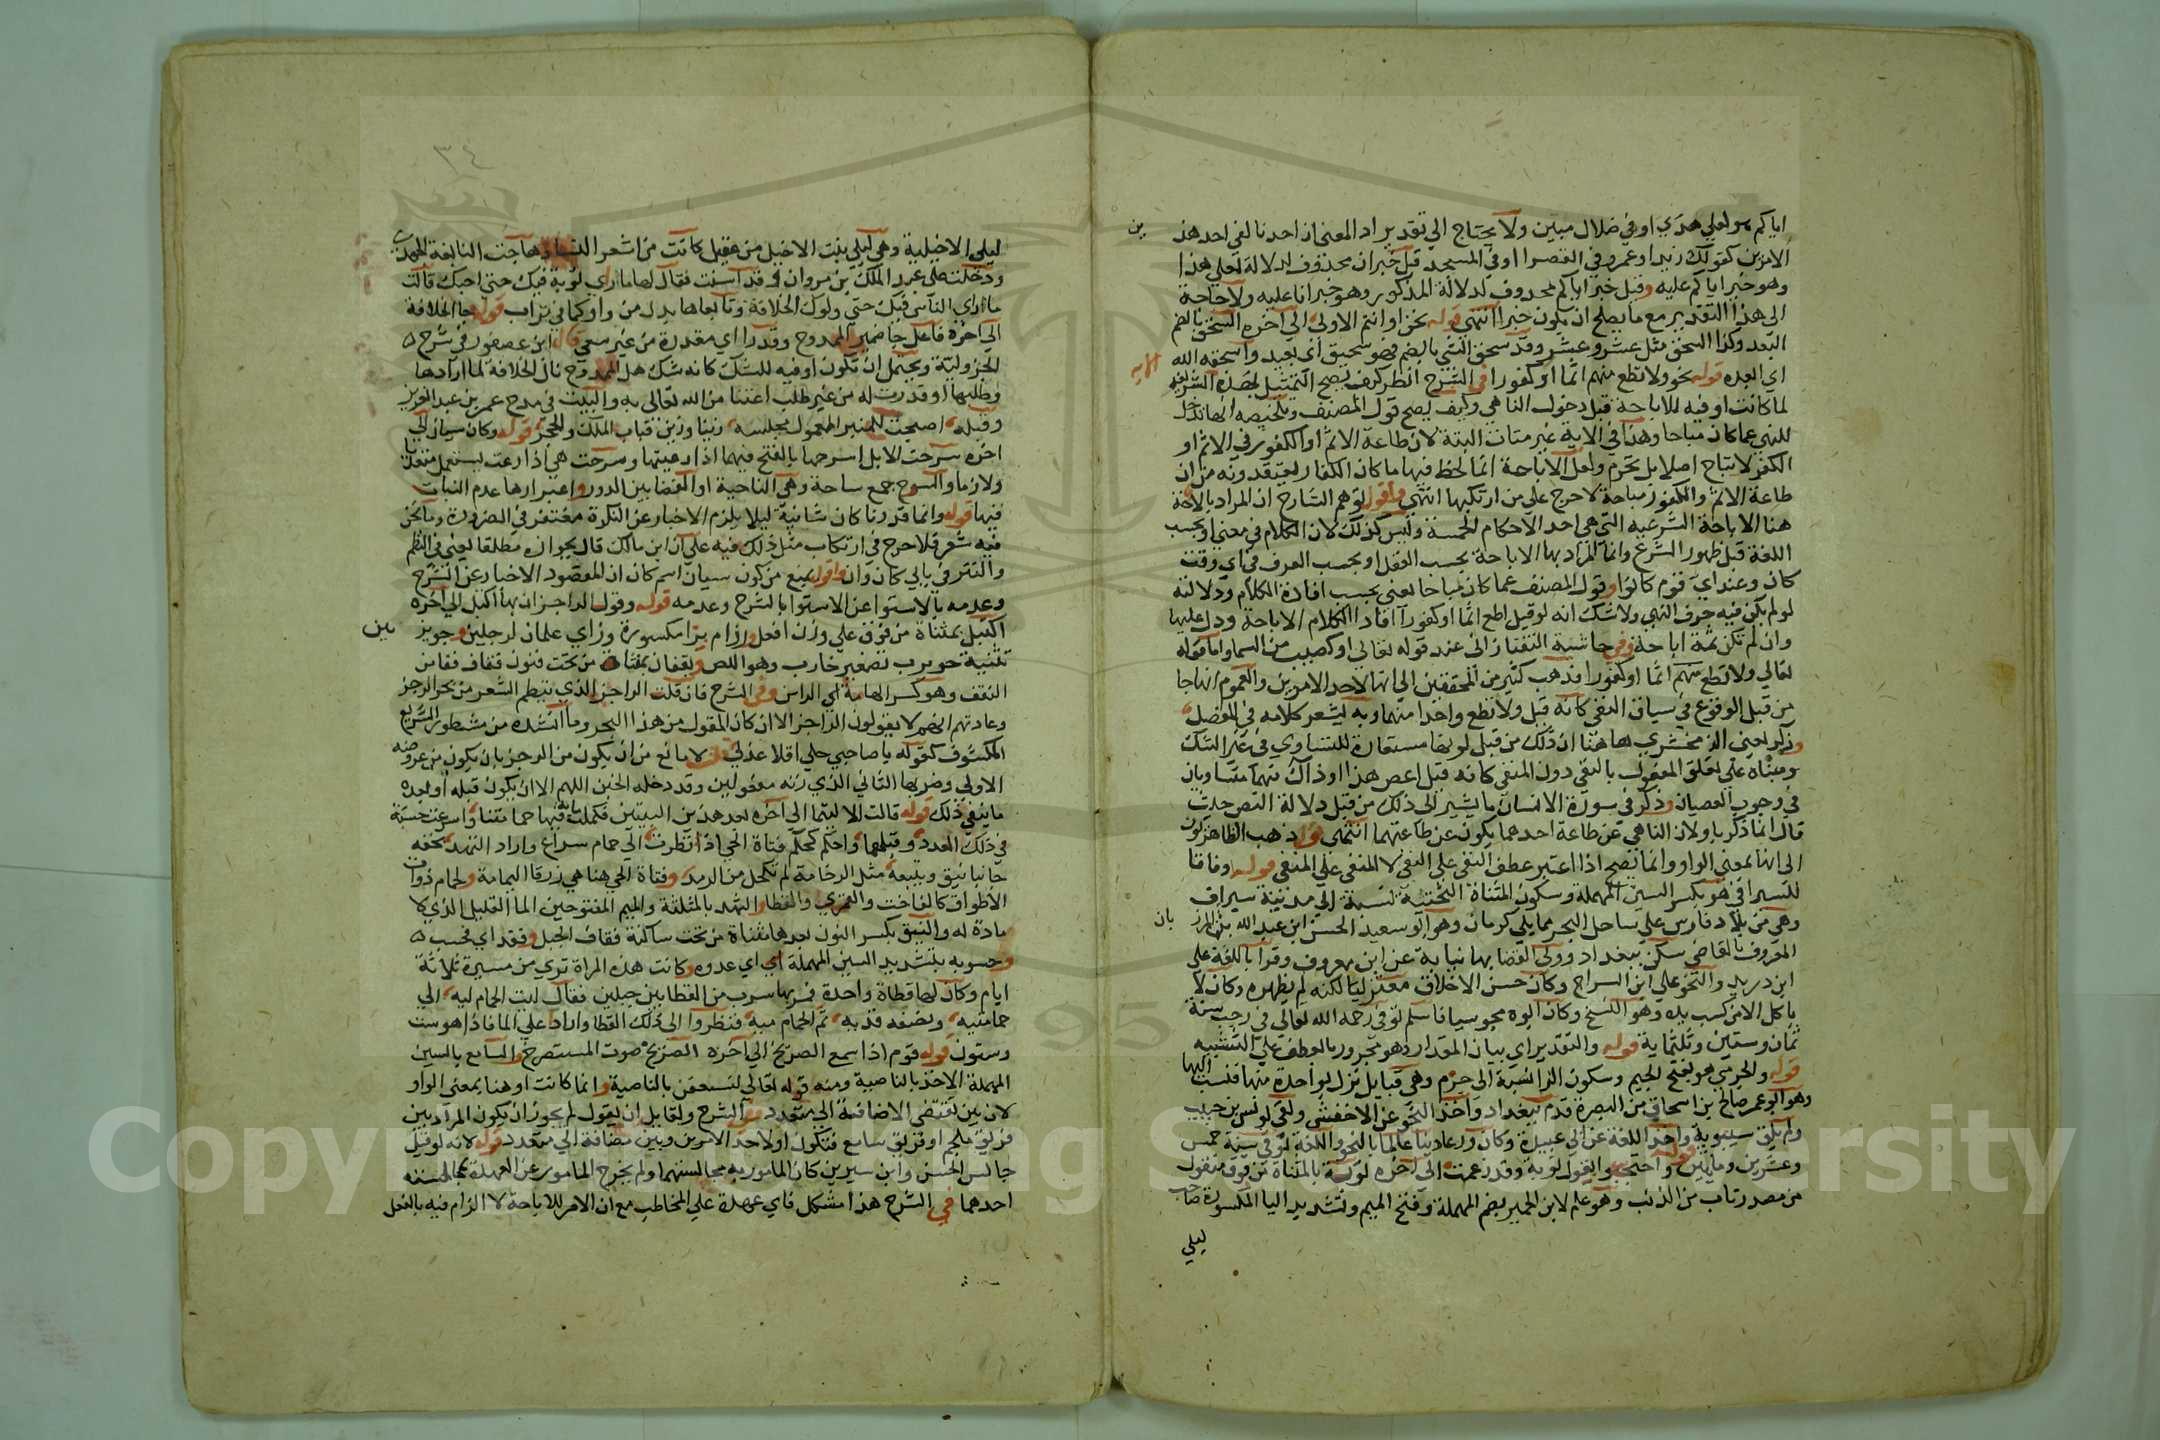 اياكم هوا لعلي هدي او في ضلال مبين ولا يحتاج الي تقدير اد المعني ان احدنا لفي احد هذين
الامرين كقولك زيد او عمرو في القصر او في المسجد قيل خبر ان محذوف لدلالة لعلي هذا
وهو خبر اياكم عليه وقيل خبر اياكم محذوف لدلالة المذكور وهو خبر انا عليه ولا حاجة
الى هذا التقدير مع ما يصلح ان يكون خبرا انتهى قوله نحن او انتم الاولى الي اخره السحق بالضم
البعد وكذا السحق مثل عشر وعشر وقد سحق الشي بالضم فهو سحيق اي بعيد واسحقه الله
اي ابعده قوله نحو ولا تطع منهم اثما او كفورا في الشرح انظر كيف يصح التمثيل بهذه الشريفة
الايه
لما كانت او فيه للاباحة قبل دخول الناهي وكيف يصح قول المصنف وتلخيصه انها تدخل
للنهي عما كان مباحا وهذا في الاية غير متات البتة لان طاعة الاثم او الكفور في الاثم او
الكفر لا تباح اصلا بل تحرم ولعل الاباحة انما لحظ فيها ما كان الكفار يعتقدونه من ان
طاعة الاثم والكفور مباحة لا حرج علي من ارتكبها انتهي واقول توهم الشارح ان المراد بالاباحة
هنا الاباحة الشرعيه التي هي احد الاحكام الخمسة وليس كذلك لان الكلام في معني او بحسب
اللغة قبل ظهور الشرع وانما المراد بها الاباحة بحسب العقل او بحسب العرف في اي وقت
كان وعند اي قوم كانوا وقول المصنف عما كان مباحا يعني بحسب افادة الكلام ودلالته
لو لم يكن فيه حرف النهي ولا شك انه لو قيل اطع اثما او كفورا افاد الكلام الاباحة ودل عليها
وان لم تكن ثمة اباحة وفي حاشية التفتازاني عند قوله تعالي او كصيب من السما واما قوله
تعالي ولا تطع منهم اثما او كفورا فذهب كثير من المحققين الي انها لاحد الامرين والعموم انما جا
من قبل الوقوع في سياق النفي كانه قيل ولا تطع واحدا منهما وبه يشعر كلامه في المفصل
وذكر يعني الزمخشري ها هنا ان ذلك من قبل لو بها مستعارة للتساوي في غير الشك
ومبناه علي تعلق المفعول بالنفي دون المنفي كانه قيل اعص هذا او ذاك فهما متساويان
في وجوب العصيان وذكر في سورة الانسان ما يشير الى ذلك من قبل دلالة النص حيث
قال انما ذكر باو لان الناهي عن طاعة احدهما يكون عن طاعتهما انتهى قوله ذهب الظاهر كون
الى انها بمعني الواو وانما يصح اذا اعتبر عطف النفي علي النفي لا المنفي علي المنفي قوله وفاقا
للسيرافي هو بكسر السين المهملة وسكون المثناة التحتية نسبة الي مدينة سيراف
وهي من بلاد فارس علي ساحل البحر مما يلي كرمان وهو ابو سعيد الحسن ابن عبد الله بن المرز
بان
المعروف بالقاضي سكن ببغداد وولي القضا بها نيابة عن ابن معروف وقرا باللغة علي
ابن دريد والنحو علي ابن السراج وكان حسن الاخلاق معتزليا لكنه لم يظهره وكان لا
ياكل الا من كسب يده وهو النسخ وكان ابوه مجوسيا فاسلم توفي رحمه الله تعالي في رجب سنة
ثمان وستين وثلثماية قوله والتقدير اي بيان المقدار وهو مجرور بالعطف علي التشبيه
قوله والجرمي هو بفتح الجيم وسكون الرا نسبة الي جرم وهي قبايل نزل بواحدة منها فنسب اليها
وهو ابو عمر صالح بن اسحاق من البصرة قدم ببغداد واخذ النحو عن الاخفش ولقي يونس بن حبيب
ولم يلق سيبويه واخذ اللغة عن ابي عبيدة وكان ورعا دينا عالما بالنحو واللغة توفي سنة خمس
وعشرين ومايتين قوله واحتجوا بقول توبة وقد زعمت الي اخره توبة بالمثناة من فوق منقول
من مصدر تاب من الذنب وهو علم لابن الحمير بضم المهملة وفتح الميم وتشديد اليا المكسورة صاحب
ليلي
٣٤
ليلى الاخيلية وهي ليلي بنت الاخيل من عقيل كانت من اشعر النسا هاجت النابغة الجعدي
ودخلت علي عبد الملك بن مروان وقد اسنت فقال لها ما راي توبة فيك حتي احبك قالت
ما راي الناس فيك حتي ولوك الخلافة وتا بعاها بدل من واو كما في تراب قوله جا الخلافة
الي اخره فاعل جا ضمير الممدوح وقدرا اي مقدرة من غير سعي قال ابن عصفور في شرح
الجزولية ويحتمل ان تكون او فيه للشك كانه شك هل الممدوح نال الخلافة لما ارادها
وطلبها او قدرت له من غير طلب اعتنا من الله تعالي به والبيت في مدح عمر بن عبد العزيز
وقبله اصبحت للمنبر المعمول مجلسه زينا وزين قباب الملك والحجر قوله وكان سيان الي
اخره سرحت الابل اسرحها بالفتح فيهما اذا رعيتها وسرحت هي اذا رعت يستعمل متعديا
ولازما والسوح جمع ساحة وهي الناحية او الفضا بين الدور واغبرارها عدم النبات
فيها قوله وانما قدرنا كان شانية ليلا يلزم الاخبار عن النكرة مغتفر في الضرورة وما نحن
فيه شعر فلا حرج في ارتكاب مثل ذلك فيه علي ان ابن مالك قال بجوازه مطلقا يعني في النظم
والنثر في بابي كان وان واقول يمنع من كون سيان اسم كان ان المقصود الاخبار عن السرح
وعدمه بالاستوا عن الاستوا بالسرح وعدمه قوله وقول الراجز ان بها اكتل الي اخره
اكتل بمثناة من فوق علي وزن افعل ورزام برا مكسورة وزاي علمان لرجلين وخويربين
تثنية خويرب تصغير خارب وهو اللص وينقفان بمثناة من تحت فنون فقاف ففا من
النقف وهو كسر الهامة اي الراس وفي الشرح فان قلت الراجز الذي ينظم الشعر من بحر الرجز
وعادتهم انهم لا يقولون الراجز الا ان كان المقول من هذا البحر وما انشده من مشطور السريع
المكسوف كقوله يا صاحبي رحلي اقلا عذلي قلت لا مانع من ان يكون من الرجز بان يكون من عروضه
الاولى وضربها الثاني الذي زنه مفعولين وقد دخله الخبن اللهم الا ان يكون قبله او بعده
ما ينفي ذلك قوله قالت الا ليتما الى اخره بعد هذين البيتين فكملت مائة فيها حمامتنا واسرعت حسبة
في ذلك العدد وقبلهما واحكم كحكم فتاة الحي اذا نظرت الي حمام سراع وارد الثمد يحفه
جانبا نيق ويتبعه مثل الزجاجة لم تكحل من الرمد وفتاة الحي هنا هي زرقا اليمامة والحمام ذوات
الاطواق كالفاخت والقمري والقطا والثمد بالمثلثة والميم المفتوحين الما القليل الذي لا
مادة له والنيق بكسر النون بعدها مثناة من تحت ساكنة فقاف الجبل وفقد اي فحسب
وحسبوه بتشديد السين المهملة اي عدوه وكانت هذه المراة تري من مسيرة ثلاثة
ايام وكان لها قطاة واحدة فمر بها سرب من القطا بين جبلين فقالت ليت الحمام ليه الي
حمامتيه ونصفه قديه تم الحمام ميه فنظروا الى ذلك القطا وارد علي الما فاذا هو ست
وستون قوله قوم اذا سمع الصريخ الي اخره الصريخ صوت المستصرخ والسافع بالسين
المهملة الاخذ بالناصية ومنه قوله تعالي لنسفعن بالناصية وانما كانت او هنا بمعني الواو
لان بين تقتضي الاضافة الي متعدد وفي الشرح ولقايل ان يقول لم يجوز ان يكون المراد بين
فريق ملجم او فريق سافع فتكون او لاحد الامرين وبين مضافة الي متعدد قوله لانه لو قيل
جالس الحسن وابن سيرين كان المامور به مجالستهما ولم يخرج المامور عن العهدة بمجالسته
احدهما في الشرح هذا مشكل فاي عهدة علي المخاطب مع ان الامر للاباحة لا الزام فيه بالفعل
Copyright © King Saud University